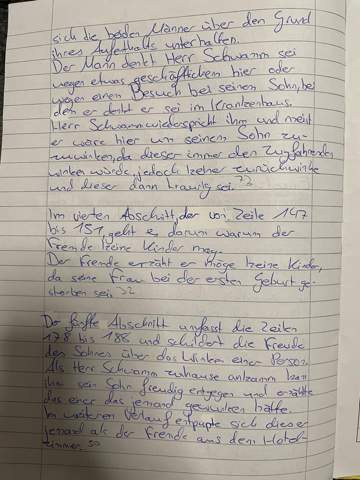 sich die beiden Männer über den Grund
ihres Aufenthalts unterhalten.
Der Mann denkt Herr Schwamm sei
wegen etwas geschäftlichem hier oder
wegen einen Besuch bei seinen Sohn, bei
den er denkt er sei im Krankenhaus.
Herr Schwamm wiederspricht ihm und meint
er wäre hier um seinem Sohn zu-
zuwinken, da dieser immer den Zugfahrenden
winken würde, jedoch keiner zurückwinke
und dieser dann traurig sei.
Im vierten Abschitt, der von Zeile 147
bis 151, geht es darum warum der
Fremde keine Kinder mag.
Der Fremde erzählt er möge keine Kinder,
da seine Frau bei der ersten Geburt ge-
storben sei.
Der fünfte Abschnitt umfasst die Zeilen
178 bis 188 und schildert die Freude
des Sohnes über das Winken einer Person.
Als Herr Schwamm zuhause ankamm kam
ihm sein Sohn freudig entgegen und erzählte
das einer das jemand gewunken hätte.
Im weiteren Verlauf entpuppte sich dieser
jemand als der Fremde aus dem Hotel-
zimmer.